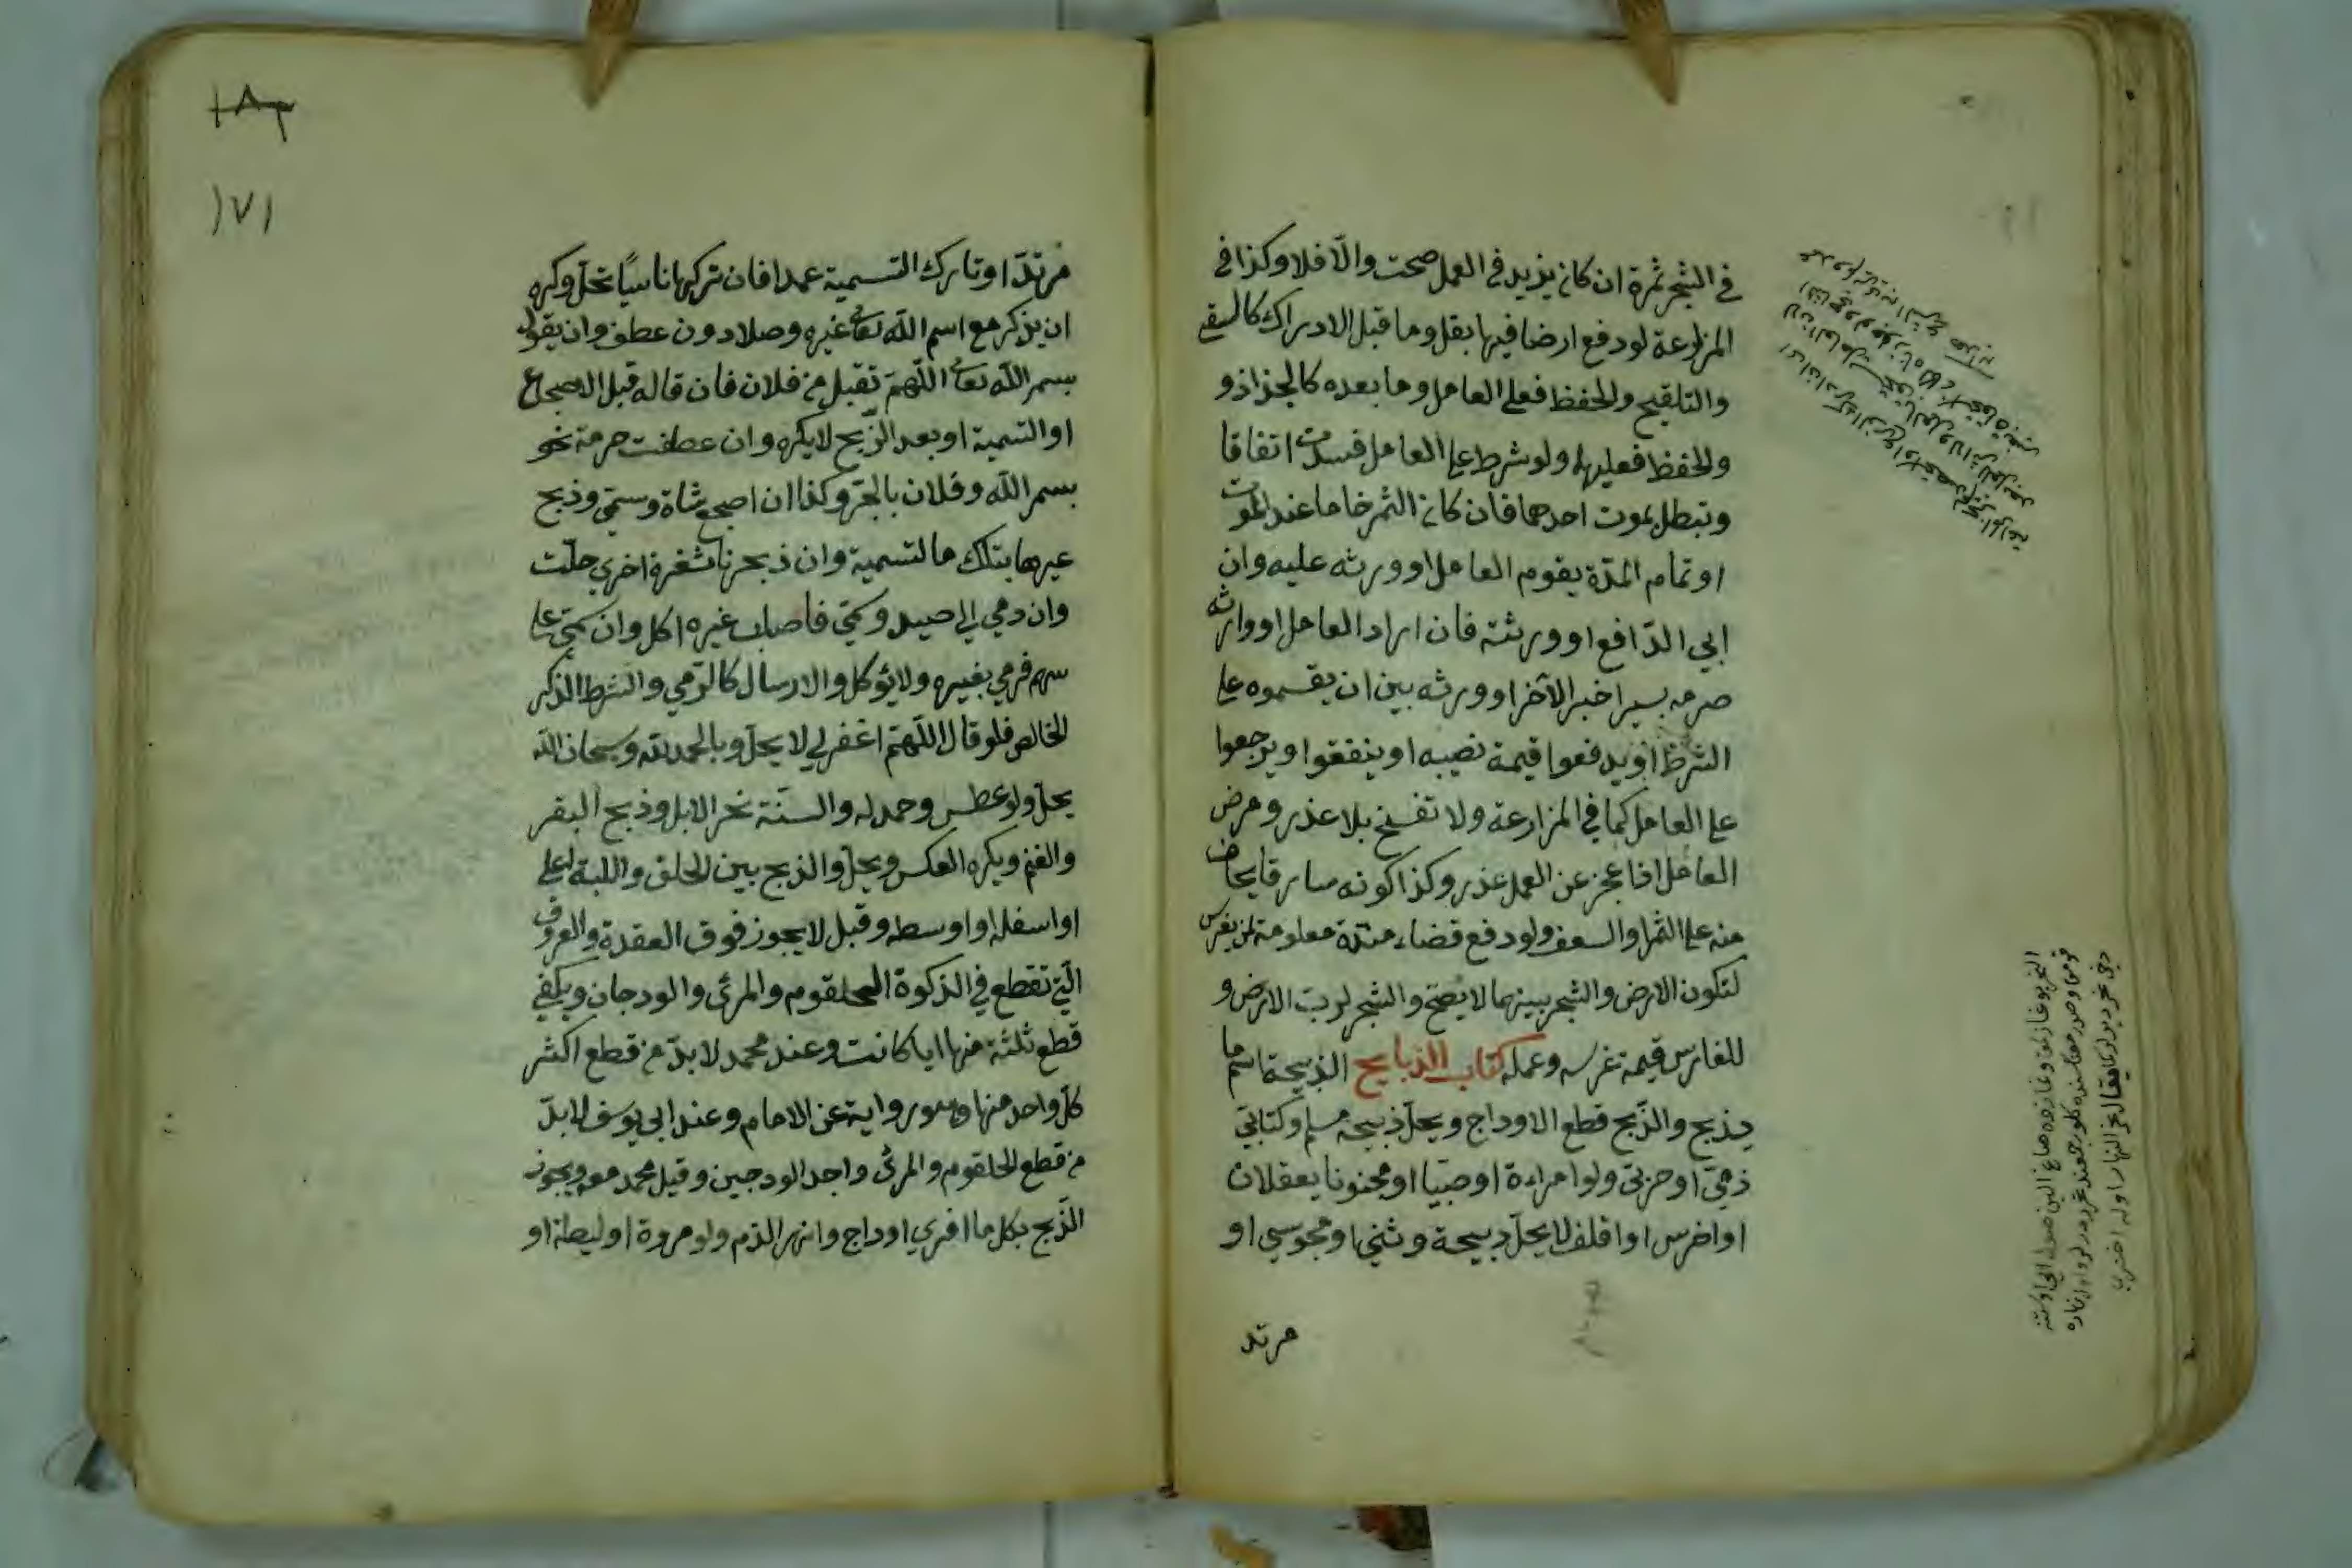 في الشجر ثمرة ان كان يزيد في العمل صحت والّا فلا وكذا في
المزارعة لو دفع ارضا فيها بقل وما قبل الادراك كالسقي
والتلقيح والحفظ فعلى العامل وما بعده كالجذاذ و
والحفظ فعليهما ولو شرط على العامل فسدت اتفاقا
وتبطل بموت احدهما فان كان الثمر خاما عند الموت
او تمام المدّة يقوم العامل او ورثه عليه وان
ابي الدّافع او ورثته فان اراد العامل او وارثه
صرمه بسرا خير الآخر او ورثه بين ان يقسموه على
الشرط او يدفعوا قيمة نصيبه او ينفقوا ويرجعوا
على العامل كما في المزارعة ولا تفسخ بلا عذر ومرض
العامل اذا عجز عن العمل عذر وكذا كونه سارقا يخاف
منه على الثمر او السعف ولو دفع فضاء مدّة معلومة لمن يغرس
لتكون الارض والشجر بينهما لا يصحّ والشجر لربّ الارض و
للغارس قيمة غرسه وعمله كتاب الذبايح الذبيحة اسم ما
يذبح والذّبح قطع الاوداج ويحلّ ذبيحة مسلم وكتابيّ
ذمّيّ او حربيّ ولو امراءة او صبّيا او مجنونا يعقلان
او اخرس او اقلف لا يحلّ ذبيحة وثنيّ او مجوسي او
مرتد
١٨٣
١٧١
مرتدّ او تارك التسمية عمدا فان تركها ناسيًا تحلّ وكره
ان يذكر مع اسم اللّه تعالى غيره وصلا دون عطف وان يقول
بسم اللّه تعالى اللّهمّ تقبل من فلان فان قاله قبل الاضجاع
او التسمية او بعد الذّبح لا يكره وان عطفت حرمة نحو
بسم اللّه وفلان بالجرّ وكذا ان اضجع شاة وسمّي وذبح
غيرها بتلك التسمية وان ذبحها بشفرة اخري حلّت
وان رمي الي صيد وسمّي فاصاب غيره اكل وان سمّي على
سهم فرمي بغيره ولا يؤكل والارسال كالرّمي والشرط الذكر
الخالص فلو قال اللّهمّ اغفر لي لا يحلّ وبالحمد لله وسبحان اللّه
يحلّ ولو عطس وحمد له والسنّة نحر الابل وذبح البقر
والغنم ويكره العكس ويحلّ والذبح بين الحلق واللبة اعلى
او اسفله او اوسطه وقيل لا يجوز فوق العقدة والعروق
الّتي تقطع في الذكوة الحلقوم والمرئ والودجان ويكفي
قطع ثلثة منها ايا كانت وعند محمد لا بدّ من قطع اكثر
كلّ واحد منها وهو رواية عن الامام وعند ابي يوسف لا بدّ
من قطع الحلقوم والمرئ واحد الودجين وقيل محمد معه ويجوز
الذّبح بكل ما افري اوداج وانهر الدّم ولو مروة او ليطة او